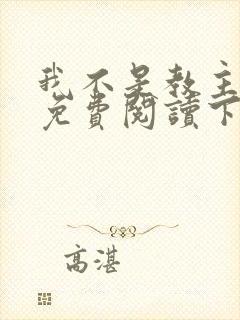 我不是教主
免費閱讀下
高湛